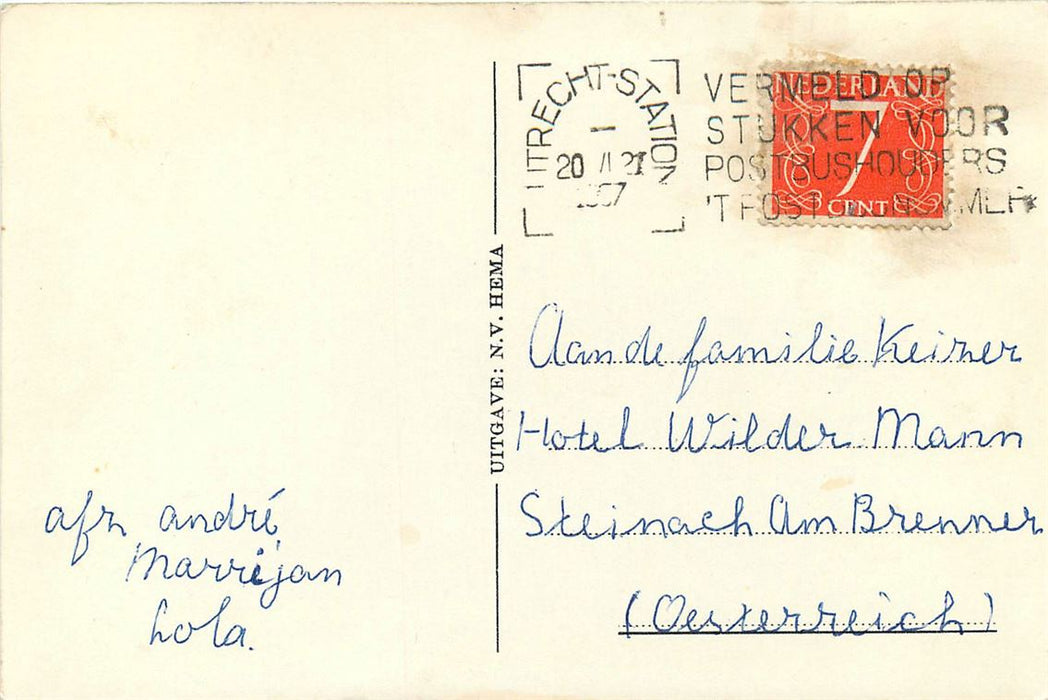 UTRECHT-STATION
20
VERMELD OP
STUKKEN VOOR
POSTBUSHOUDERS
'T POSTBUSNUMMER
NEDERLAND
7
CENT
UITGAVE: N.V. HEMA
Aan de familie Keizer
Hotel Wilder Mann
Steinach Am Brenner
(Oesterreich)
afz andré
Marrijan
Lola.